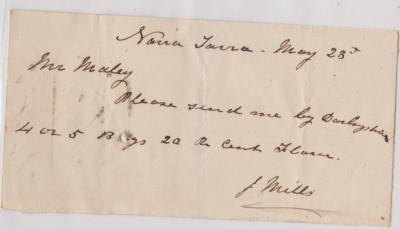 Narra Tarra - May 23
Mr Maley
Please send me by Darbyshire
4 or 5 Bags 20 Pr Cent Flour.
J Mills